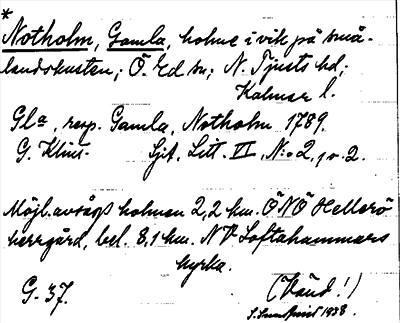 *
Notholm, Gamla, holme i vik på små-
landskusten; Ö. Ed sn; N. Tjusts hd;
Kalmar l.
Gla, resp. Gamla, Notholm 1789.
G. Klint. Sjt. Litt. VI, N:o 2, s. 2.
Möjl. avsågs holmen 2,2 km. ÖNÖ Hellerö
herrgård, bel. 8,1 km. NV Loftahammars
kyrka.
G. 37. (Vänd!)
1938.